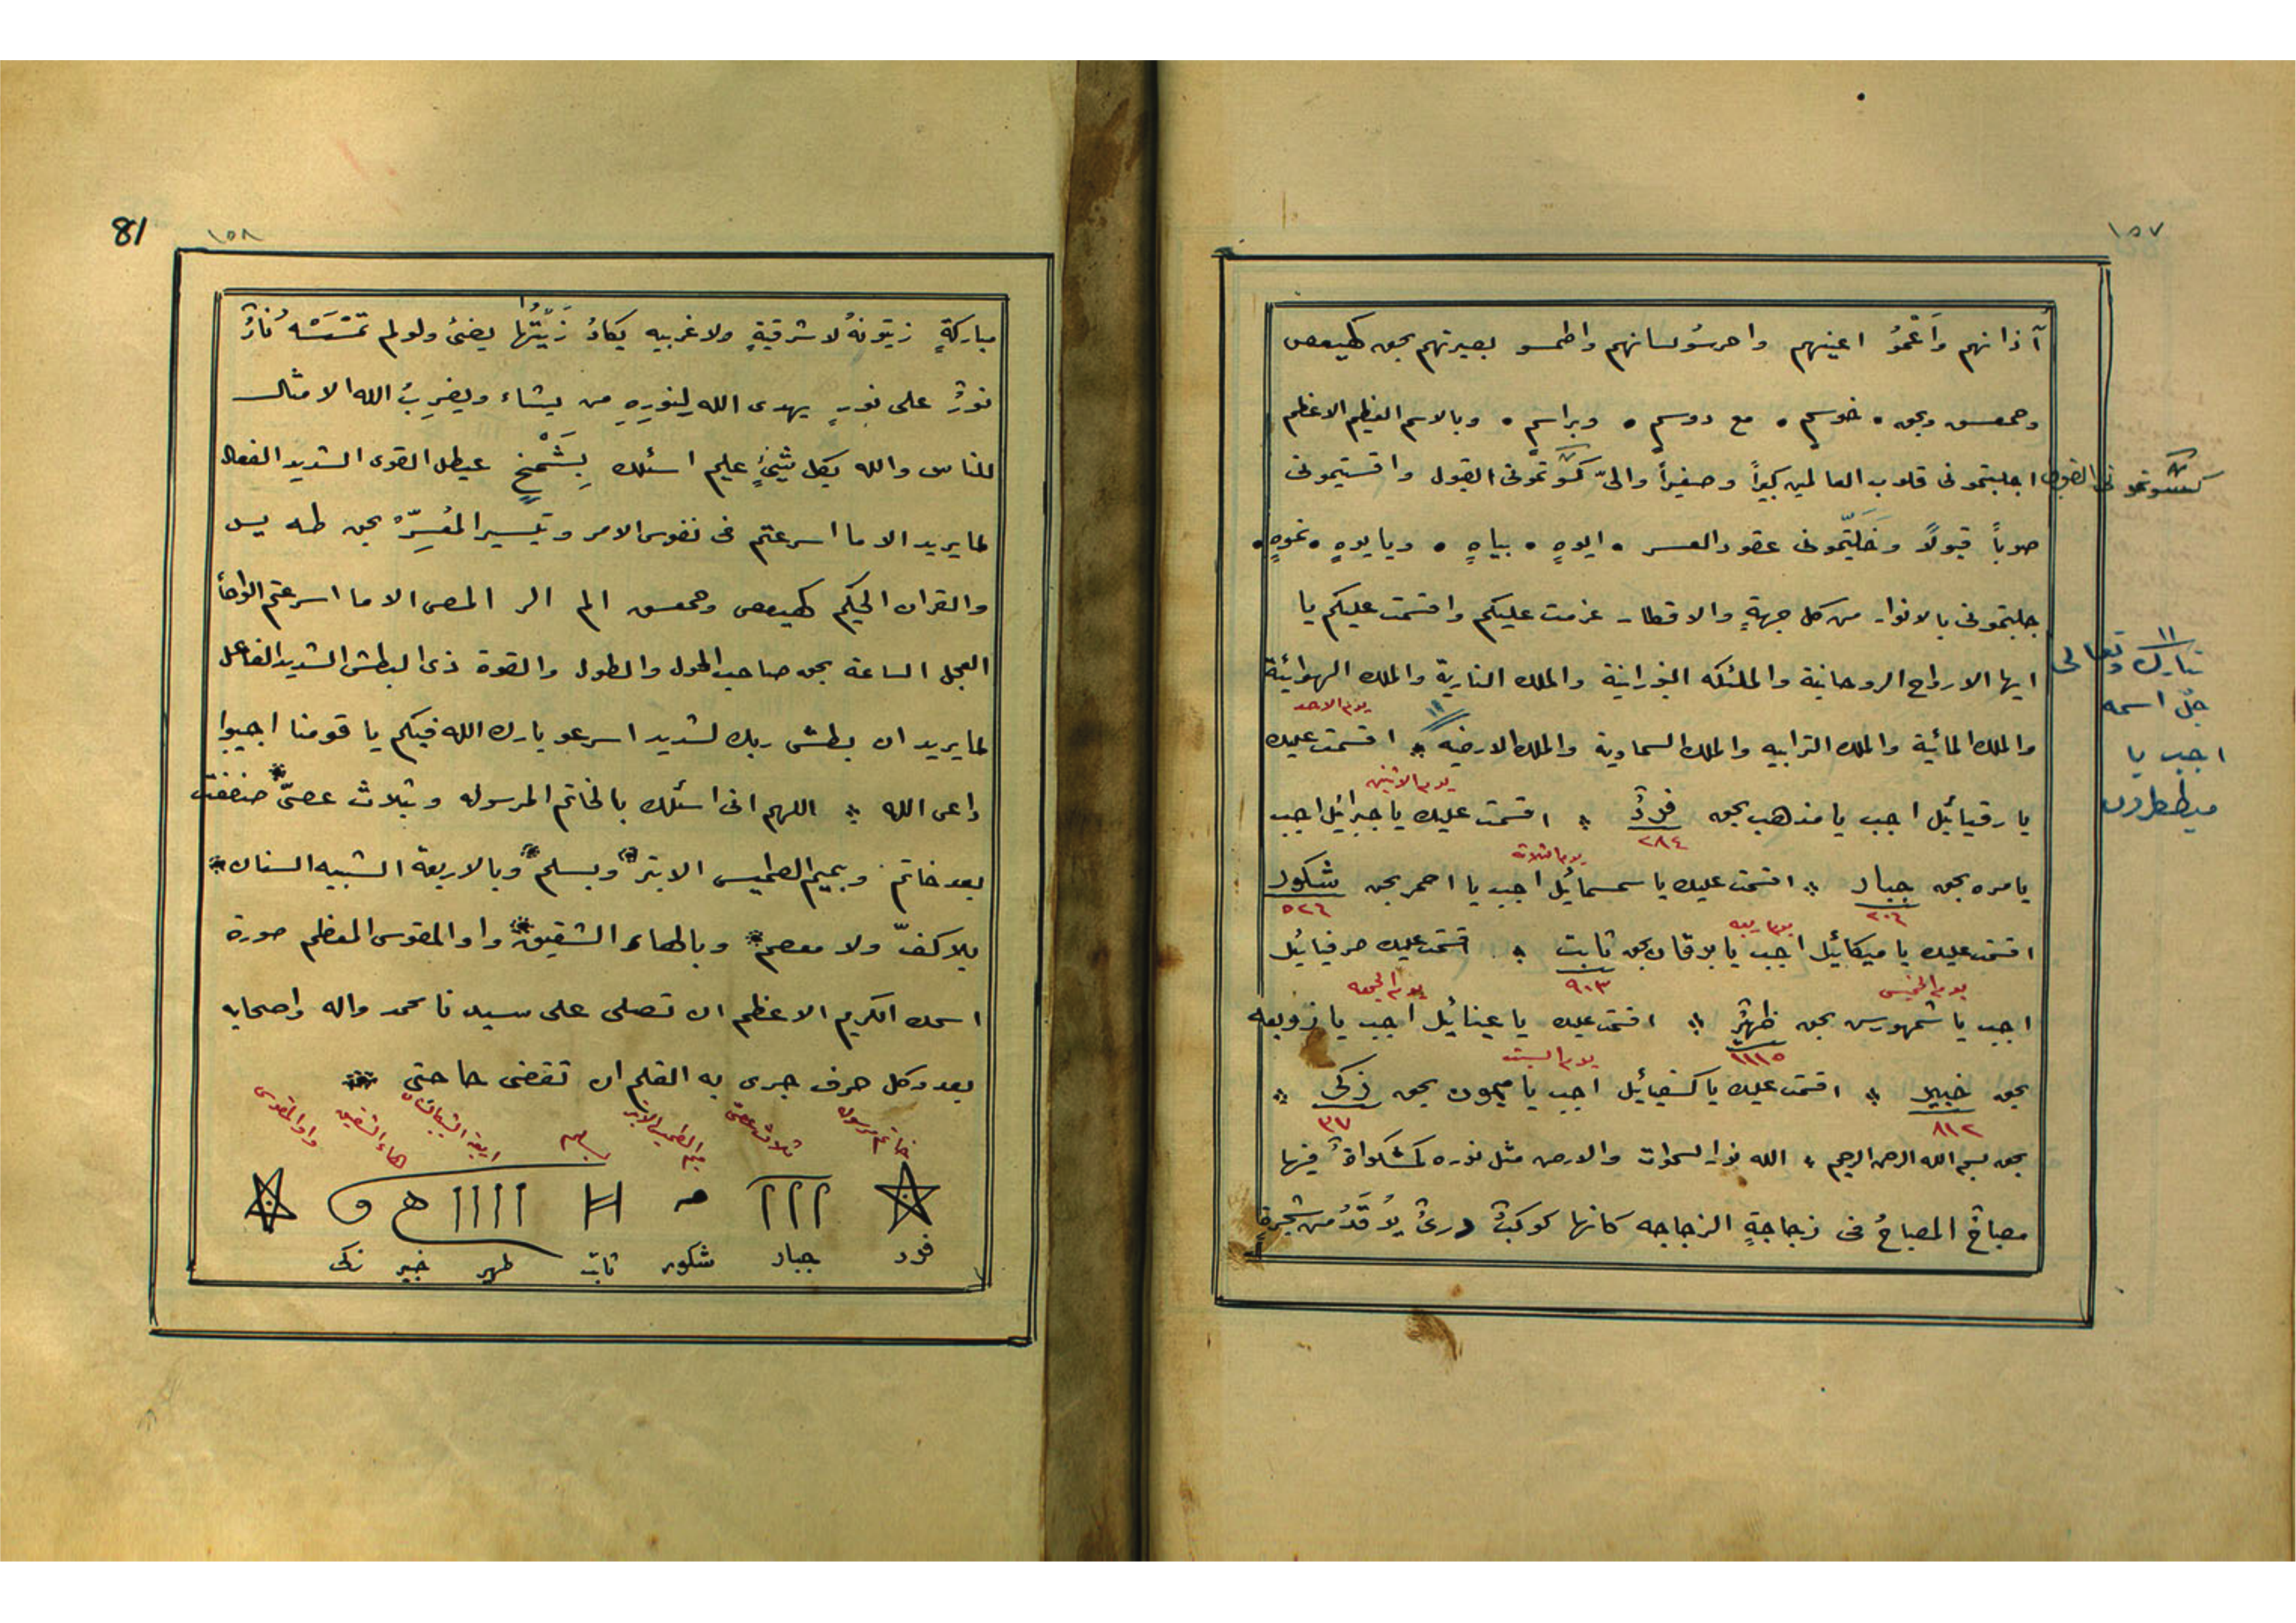 ١٥٧
آذانهم وَاَعْمُوُ اعينهم واحرسُو لسانهم واطمسو بصيرتهم بحق كهيعص
وحمعسق وبحق • خوسم • مع دوسم • وبراسم • وبالاسم العظيم الاعظم
اجلبتمونى قلوب العالمين كبيراً وصغيراً والىّ القول
صوباً قبولاً عقود العسر • ايوهٍ • بياهٍ • ويايوهٍ • نموهٍ •
جلبتمونى بالانوار من كل جهةٍ والاقطار عزمت عليكم واقسمت عليكم يا
ايها الارواح الروحانية والملئكه النورانية والملك النارية والملك الهوائية
يوم الاحد
والملك المائية والملك الترابيه والملك السماوية والملك الارضيه اقسمت عليك
يوم الاثنين
يا رقيائيل اجب يا مذهب بحق فردٌ اقسمت عليك يا جبرائيل اجب
٢٨٤
يوم الثلاثه
يا مره بحق جبار اقسمت عليك يا سمسمائيل اجب يا احمر بحق شكور
٢٠٦ ٥٢٦
اقسمت عليك يا ميكائيل اجب يا برقان بحق ثابت قسمت عليك صرفيائيل
٩٠٣
يوم الخميس يوم الجمعه
اجب يا شمهورس بحق ظهيرٌ اقسمت عليك يا عينائيل اجب يا زوبعه
١١١٥
يوم السبت
بحق خبير اقسمت عليك يا كسفيائيل اجب يا ميمون بحق زكى
٨١٢ ٣٧
بحق بسم الله الرحمن الرحيم الله نور السموات والارض مثل نوره كمشكواة فيها
مصباحٌ المصباحُ فى زجاجةٍ الزجاجه كانها كوكبٌ درىٌ يُوقَدُ من شجرةٍ
تبارك وتعالى
جل اسمه
اجب يا
ميططرون
81
١٥٨
مباركةٍ زيتونةٌ لا شرقيةٍ ولا غربيه يكادُ زَيْتُها يضئ ولو لم تمْسَسْهُ نارٌ
نورٌ على نورٍ يهدى الله لِنورِهِ من يشاء ويضرِبُ الله الامثال
للناس والله بكل شئٍ عليم اسئلك بِشَمْخٍ عيطل القوى الشديد الفعال
لما يريد الا ما اسرعتم فى نفوس الامر وتيسير المُعْسِرّ بحق طه يس
والقران الحكيم كهيعص وحمعسق الم الر المص الا ما اسرعتم الوحاً
العجل الساعة بحق صاحب الحول والطول والقوة ذى البطش الشديد الفاعل
لما يريد ان بطش ربك لشديد اسرعو بارك الله فيكم يا قومنا اجيبوا
داعى الله اللهم انى اسئلك بالخاتم المرسول وبثلاث عصىّ صففت
بعد خاتم وبميم الطميس الابتر وبسلم وبالاربعة الشبيه السنان
بلا كفّ ولا معصم وبالهاء الشقيق واو المقوس المعظم صورة
اسمك الكريم الاعظم ان تصلى على سيدنا محمد واله واصحابه
بعدد كل حرف جرى به القلم ان تقضى حاجتى
خاتم مرسول ثلاث عصىّ ميم الطميس الابتر سلم اربعة الشبيه السنان الهاء الشقيق واو المقوس
فرد جبار شكور ثابت ظهير خبير زكى